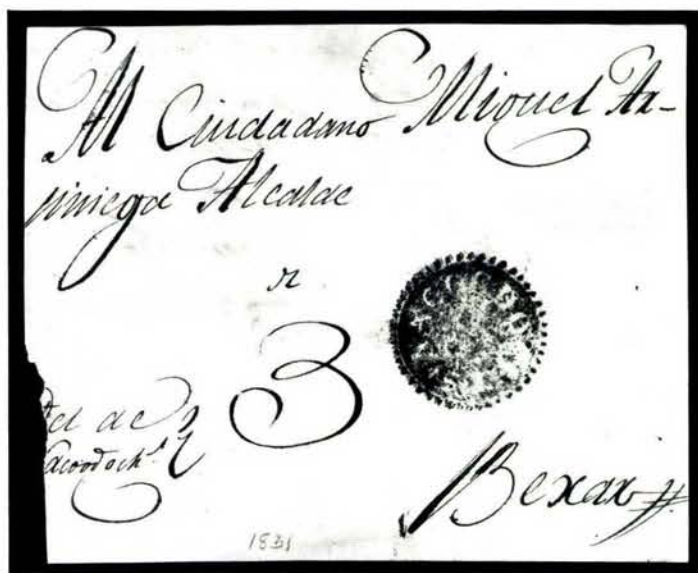 Al Ciudadano Miguel Ar-
ciniega Alcalde
r
3
del de
acodochs
Bexar
1831